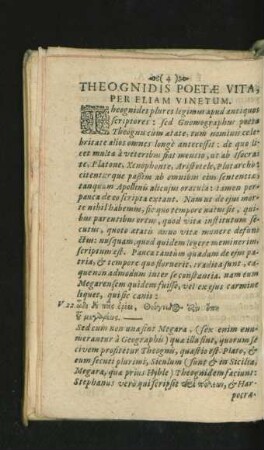 (4)
THEOGNIDIS POETÆ VITA,
PER ELIAM VINETUM.
Theognides plures legimus apud antiquos
scriptores: sed Gnomographus poëta
Theognis cùm ætate, tum nominis cele-
britate alios omnes longè antecessit: de quo li-
cet multa à veteribus fiat mentio, ut ab Isocra-
te, Platone, Xenophonte, Aristotele, Plutarcho:
citenturque passim ab omnibus eius sententiæ
tanquam Apollinis alicujus oracula: tamen per-
pauca de eo scripta extant. Nam ut de ejus mor-
te nihil habemus, sic quo tempore natus sit, qui-
bus parentibus ortus, quod vitæ institutum secu-
tus, quoto ætatis anno vitæ munere defun-
ctus: nusquam, quod quidem legere meminerim,
scriptum est. Pauca tantùm quædam de ejus pa-
tria, & tempore quo floruerit, tradita sunt, ea-
que non admodum inter se constantia. nam eum
Megarensem quidem fuisse, vel ex ejus carmine
liquet, quo sic canit:
V. 22.
Sed cùm non una sint Megara, (sex enim enu-
merantur à Geographis) quæ illa sint, quorum se
civem profitetur Theognis, quæstio est. Plato, &
eum secuti plurimi, Siculum (sunt & in Sicilia
Megara, quæ prius Hyble) Theognidem faciunt:
Stephanus verò qui scripsit & Har-
pocra-